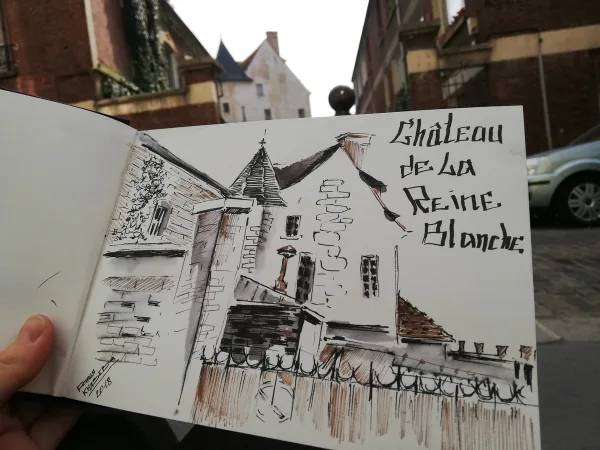 Château
de La
Reine
Blanche
2018